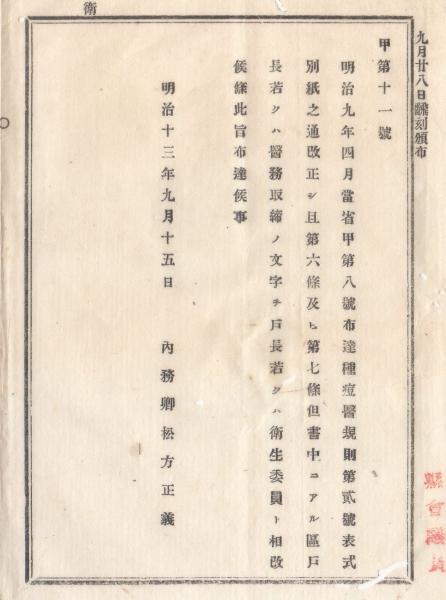 衛
九月廿八日飜刻頒布
甲第十一號
明治九年四月當省甲第八號布達種痘醫規則第貳號表式
別紙之通改正シ且第六條及ヒ第七條但書中ニアル區戸
長若クハ醫務取締ノ文字ヲ戸長若クハ衛生委員ト相改
候條此旨布達候事
明治十三年九月十五日 內務卿松方正義
縣會議員